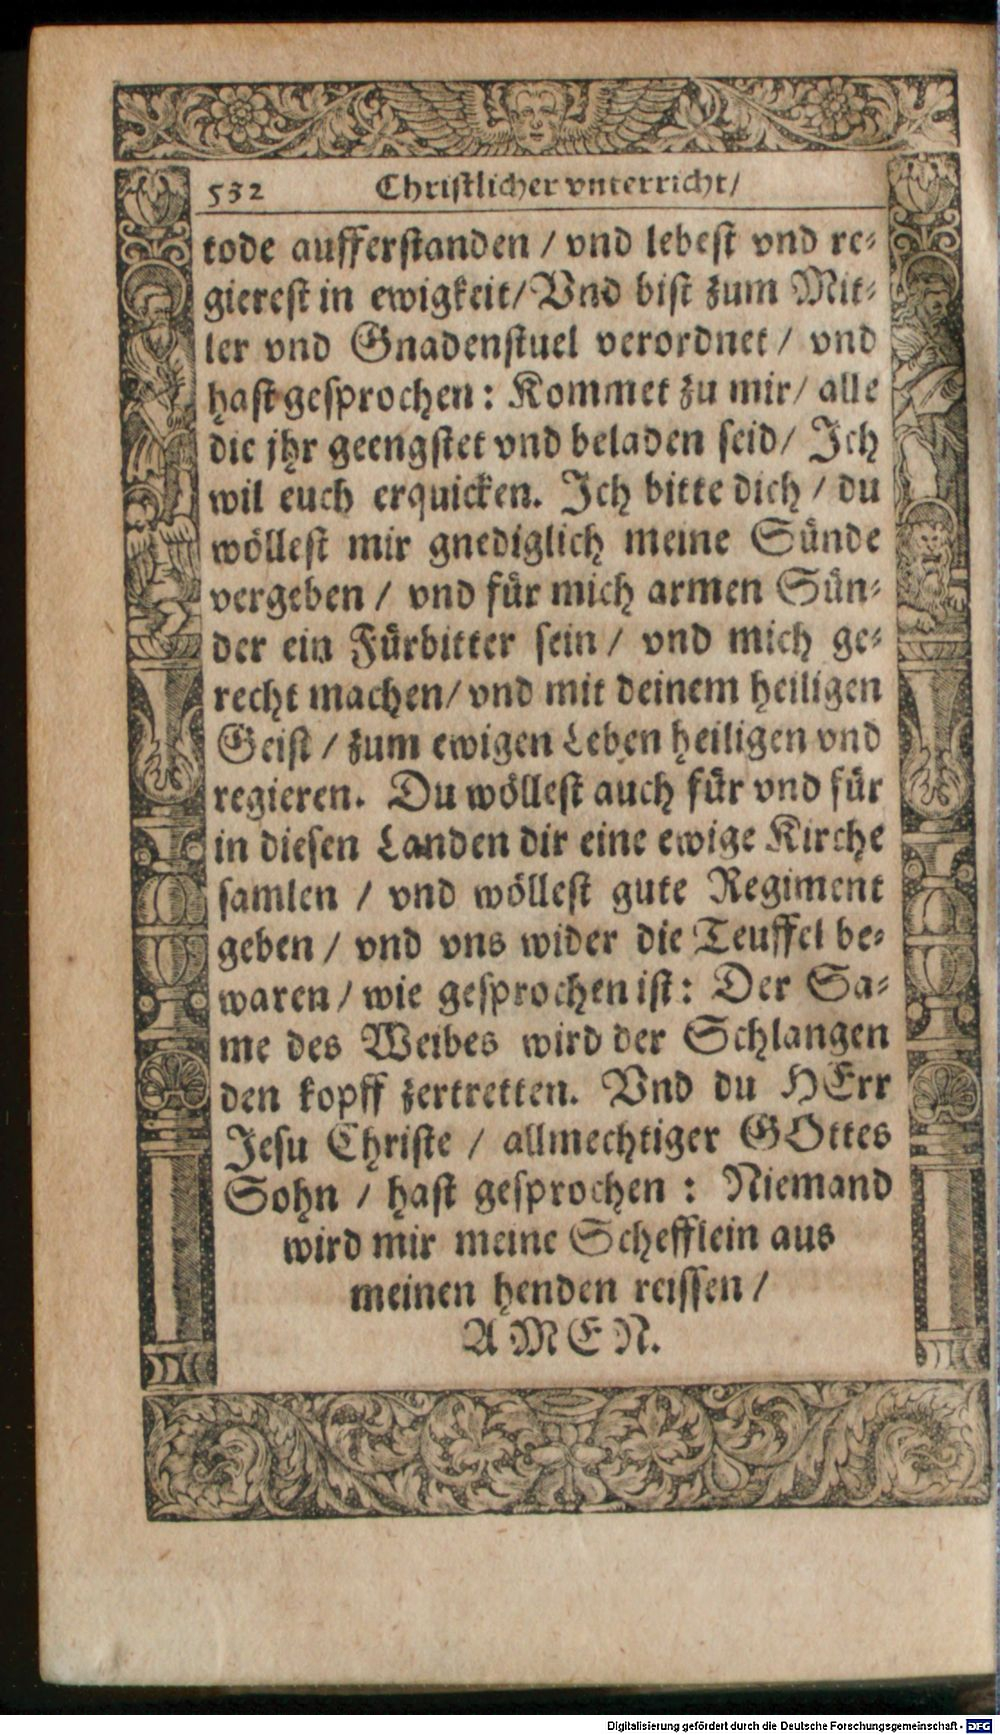 532 Christlicher vnterricht/
tode aufferstanden / vnd lebest vnd re⸗
gierest in ewigkeit/ Vnd bist zum Mit⸗
ler vnd Gnadenstuel verordnet / vnd
hast gesprochen: Kommet zu mir/ alle
die jhr geengstet vnd beladen seid/ Ich
wil euch erquicken. Ich bitte dich / du
wöllest mir gnediglich meine Sünde
vergeben / vnd für mich armen Sün⸗
der ein Fürbitter sein / vnd mich ge⸗
recht machen/ vnd mit deinem heiligen
Geist / zum ewigen Leben heiligen vnd
regieren. Du wöllest auch für vnd für
in diesen Landen dir eine ewige Kirche
samlen / vnd wöllest gute Regiment
geben / vnd vns wider die Teuffel be⸗
waren / wie gesprochen ist: Der Sa⸗
me des Weibes wird der Schlangen
den kopff zertretten. Vnd du HErr
Jesu Christe / allmechtiger GOttes
Sohn / hast gesprochen : Niemand
wird mir meine Schefflein aus
meinen henden reissen /
AMEN.
Digitalisierung gefördert durch die Deutsche Forschungsgemeinschaft - DFG